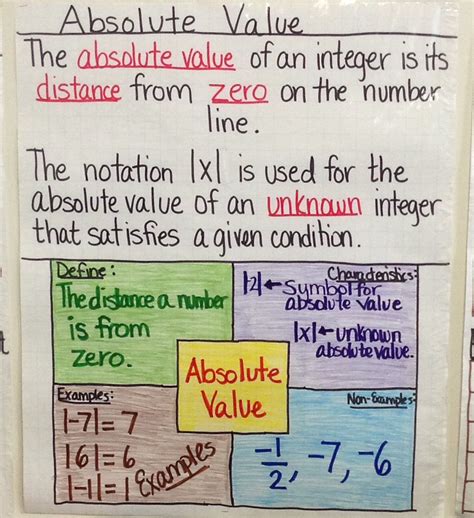 Absolute Value
The absolute value of an integer is its
distance from zero on the number
line.
The notation |x| is used for the
absolute value of an unknown integer
that satisfies a given condition.
Define:
The distance a number
is from
zero.
Characteristics:
|2|← Symbol for
absolute value
|x|← unknown
absolute value.
Absolute
Value
Examples:
|-7|= 7
|6|= 6
|-1|= 1
Examples
Non-Examples:
-1/2, -7, -6
t